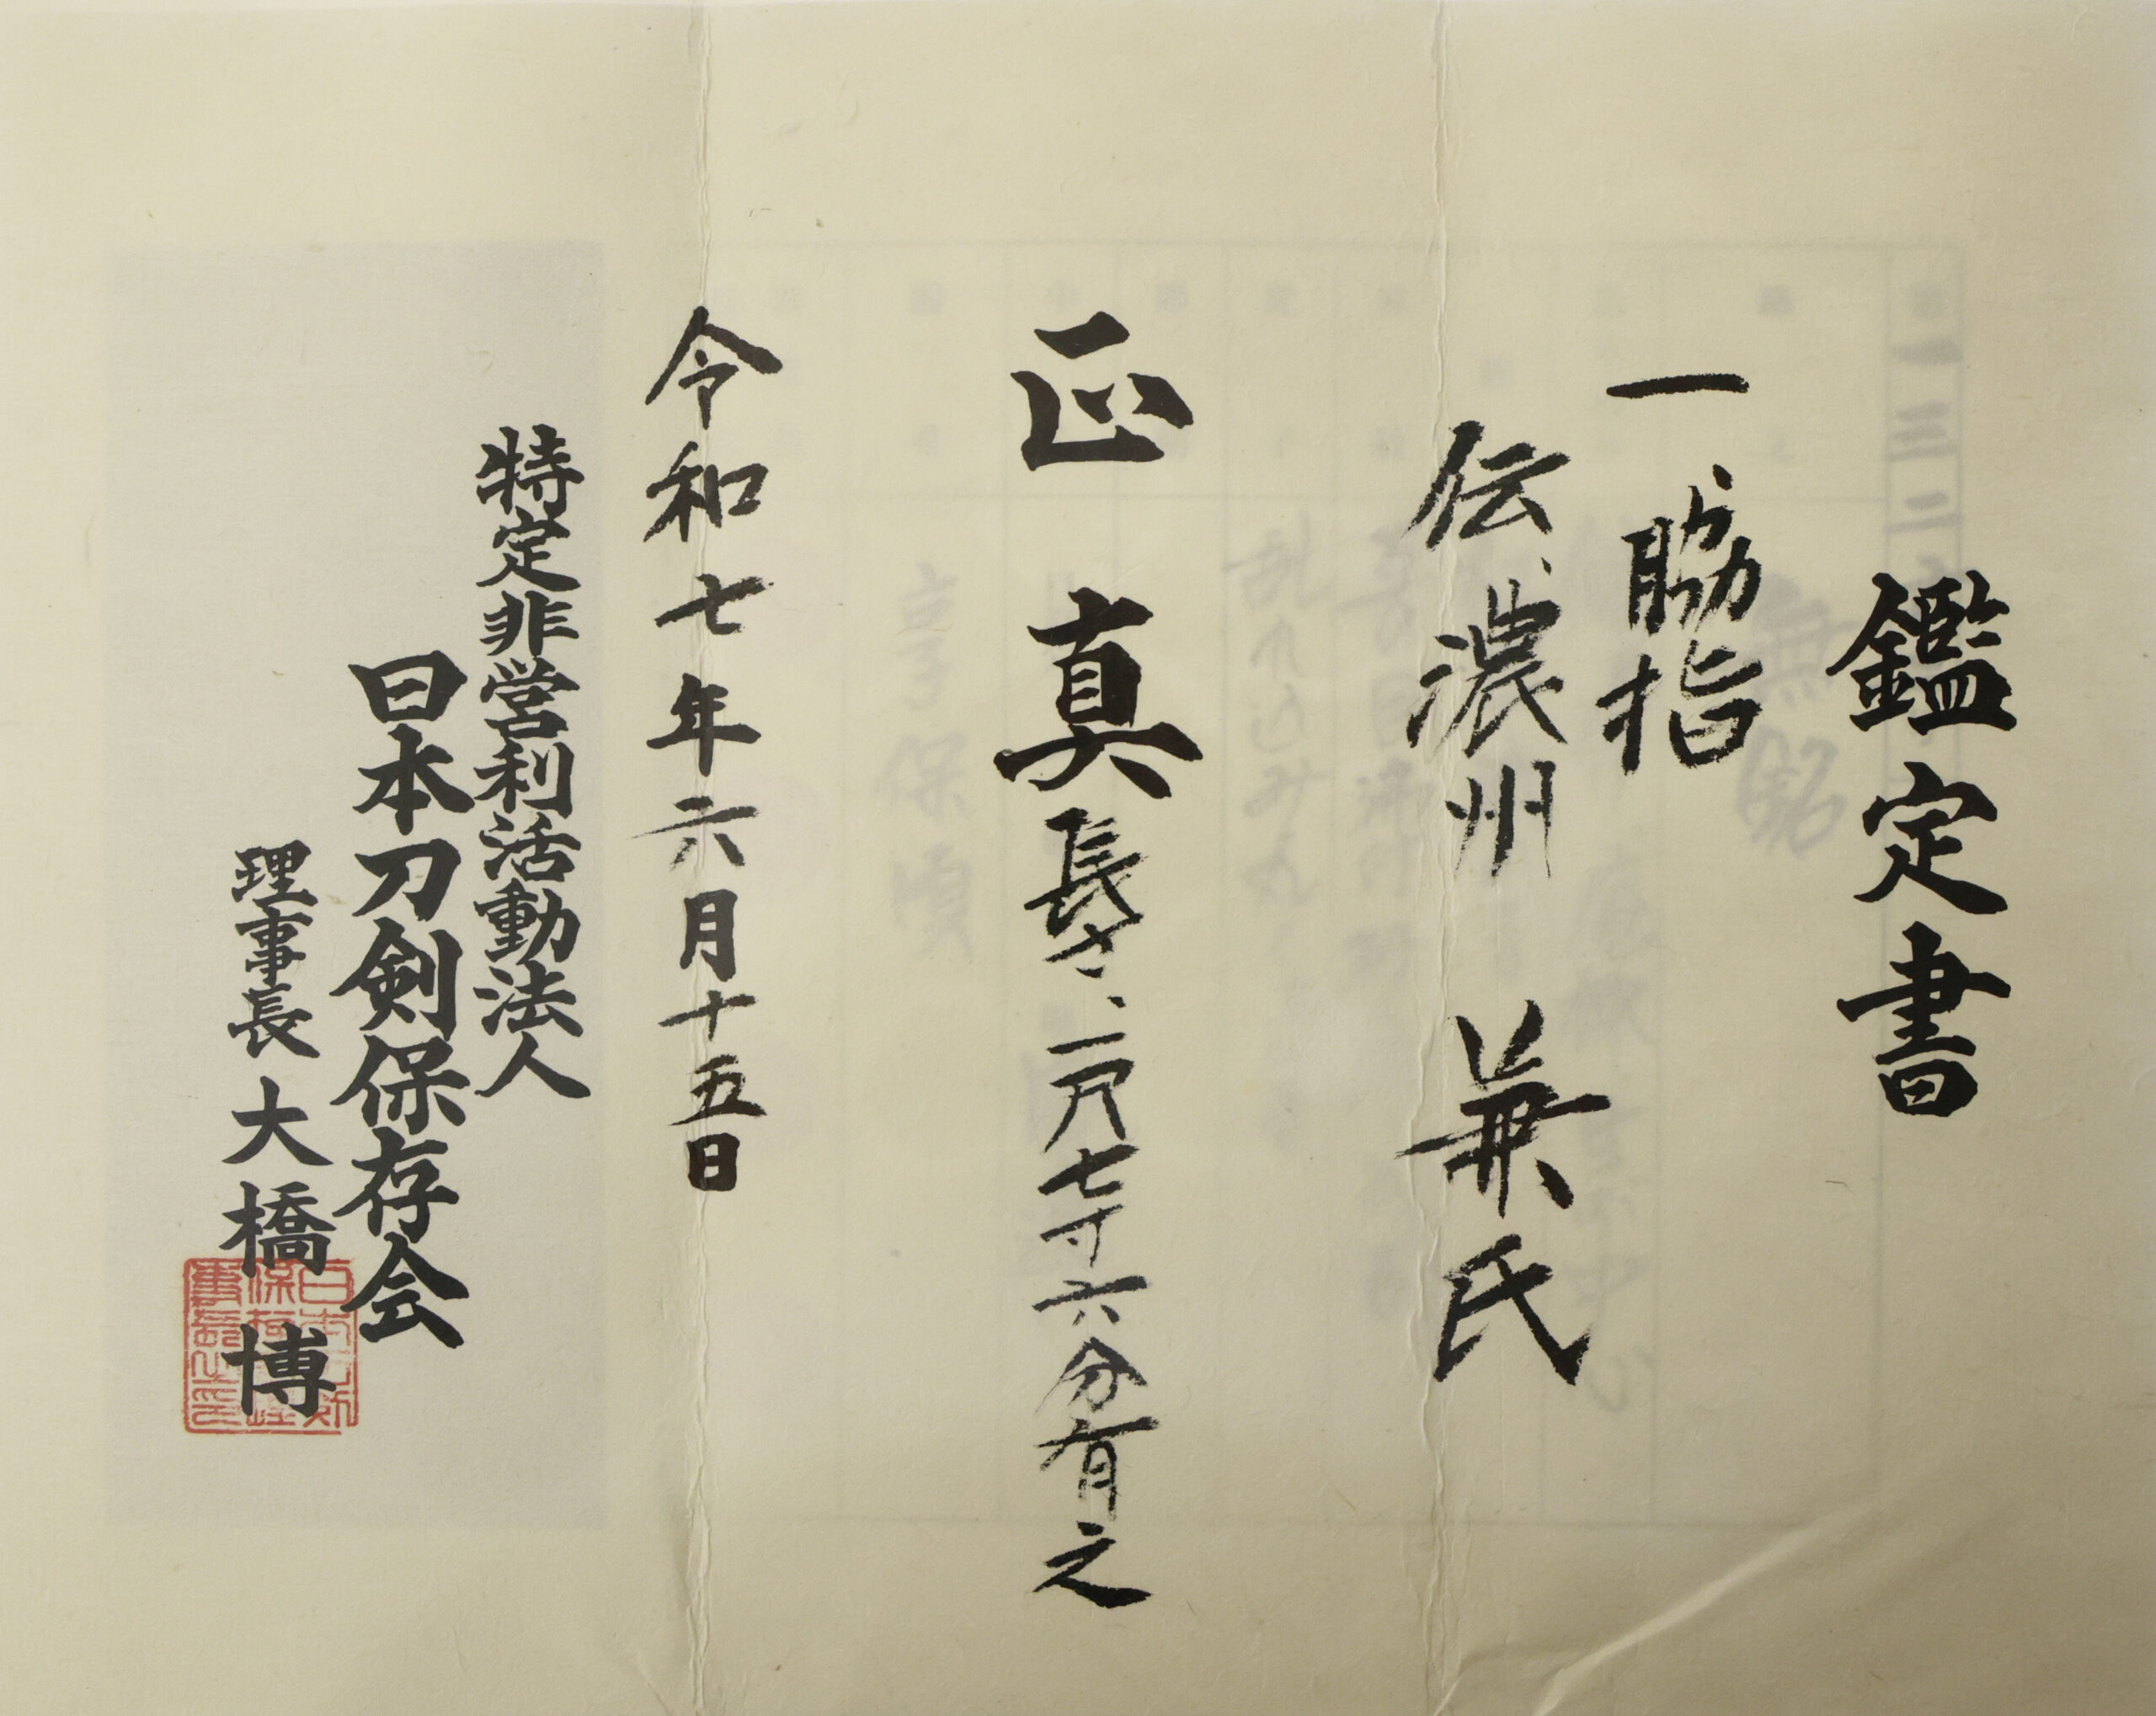 鑑定書
一 脇指
伝 濃州 兼氏
正真 長さ、一尺七寸六分有之
令和七年六月十五日
特定非営利活動法人
日本刀剣保存会
理事長 大橋 博